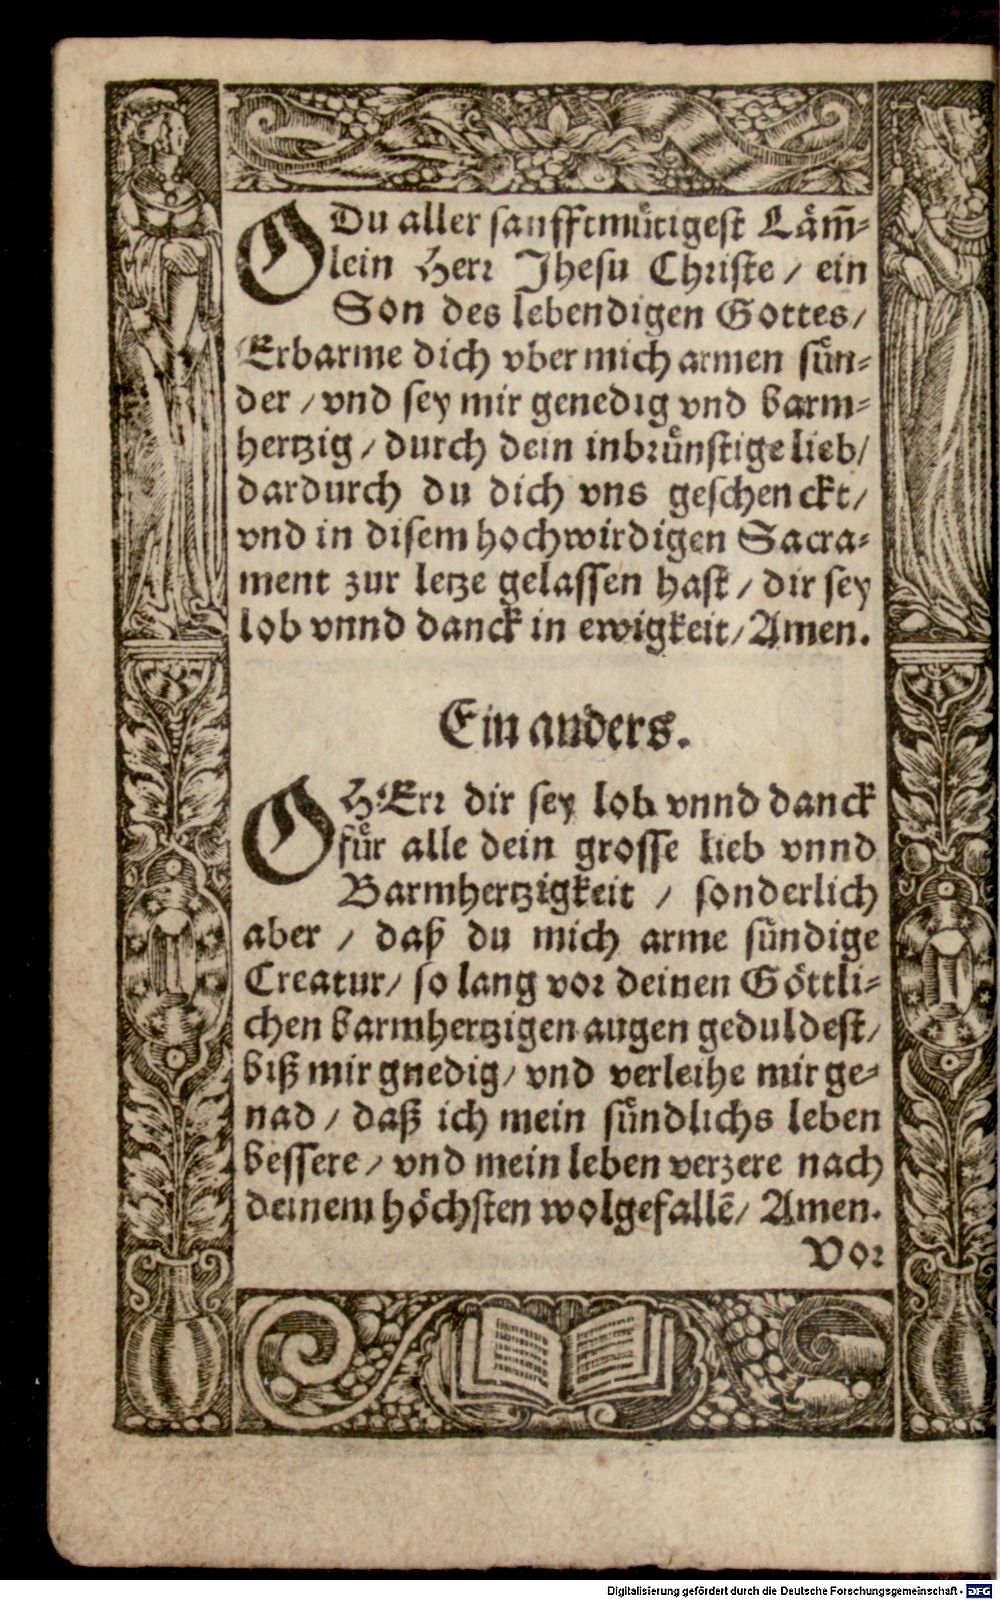 ODu aller saufftmuͤtigest Laͤm̄-
lein Herr Jhesu Christe / ein
Son des lebendigen Gottes /
Erbarme dich vber mich armen suͤn-
der / vnd sey mir genedig vnd barm-
hertzig / durch dein inbruͤnstige lieb /
dardurch du dich vns geschenckt /
vnd in disem hochwirdigen Sacra-
ment zur letze gelassen hast / dir sey
lob vnnd danck in ewigkeit / Amen.
Ein anders.
O HErr dir sey lob vnnd danck
fuͤr alle dein grosse lieb vnnd
Barmhertzigkeit / sonderlich
aber / daß du mich arme suͤndige
Creatur / so lang vor deinen Goͤttli-
chen barmhertzigen augen geduldest /
biß mir gnedig / vnd verleihe mir ge-
nad / daß ich mein suͤndlichs leben
bessere / vnd mein leben verzere nach
deinem hoͤchsten wolgefallē / Amen.
Vor
Digitalisierung gefördert durch die Deutsche Forschungsgemeinschaft - DFG